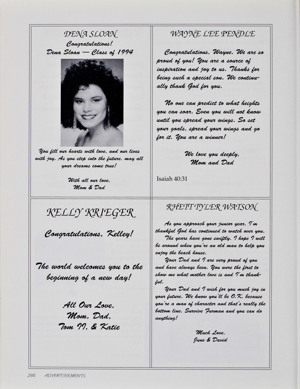 DENA SLOAN
Congratulations!
Dena Sloan — Class of 1994
You fill our hearts with love, and our lives
with joy. As you step into the future, may all
your dreams come true!
With all our love,
Mom & Dad
WAYNE LEE PENDLE
Congratulations, Wayne. We are so
proud of you! You are a source of
inspiration and joy to us. Thanks for
being such a special son. We continu-
ally thank God for you.
No one can predict to what heights
you can soar. Even you will not know
until you spread your wings. So set
your goals, spread your wings and go
for it. You are a winner!
We love you deeply,
Mom and Dad
Isaiah 40:31
KELLY KRIEGER
Congratulations, Kelley!
The world welcomes you to the
beginning of a new day!
All Our Love,
Mom, Dad,
Tom II, & Katie
RHETT TYLER WATSON
As you approach your junior year, I'm
thankful God has continued to watch over you.
The years have gone swiftly. I hope I will
be around when you're an old man to help you
enjoy the beach house.
Your Dad and I are very proud of you
and have always been. You were the first to
show me what mother love is and I'm thank-
ful.
Your Dad and I wish for you much joy in
your future. We know you'll be O.K. because
you're a man of character and that's really the
bottom line. Survive Furman and you can do
anything!
Much Love,
June & David
ADVERTISEMENTS